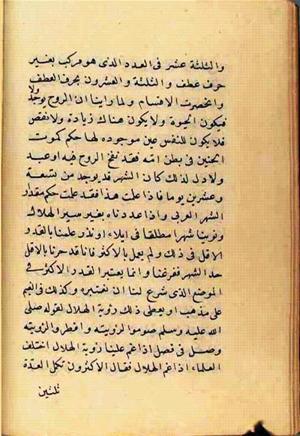 والثلثة عشر في العدد الذي هو مركب بغير
حرف عطف والثلثة والعشرون بحرف العطف
وانحصرت الاقسام ولما راينا ان الروح يوجد ولا
فيكون الحيوة ولا يكون هناك زيادة ولا نقص
فلا يكون للنفس عين موجوده لها حكم كموت
الجنين في بطن امه فقد نفخ الروح فيه او عند
ولادته لذلك كان الشهر قد يوجد من تسعة
وعشرين يوما فاذا علمت هذا فقد علمت حكم مقدار
الشهر العربي واذا عددناه بغير سير الهلال
ونوينا شهرا مطلقا في ايلاء او نذر علمنا بالقدر
الاقل في ذلك ولم يعمل بالاكثر فاننا قد حزنا بالاقل
حد الشهر ففرغنا وانما يعتبر القدر الاكثر في
الموضع الذي شرع لنا ان نعتبره وذلك في الغيم
على مذهب او يعطى ذلك رؤية الهلال لقوله صلى
الله عليه وسلم صوموا لرؤيته وافطروا لرؤيته
وصل في فصل اذا غم علينا رؤية الهلال اختلف
العلماء اذا غم الهلال فقال الاكثرون تكمل العدة
ثلثين